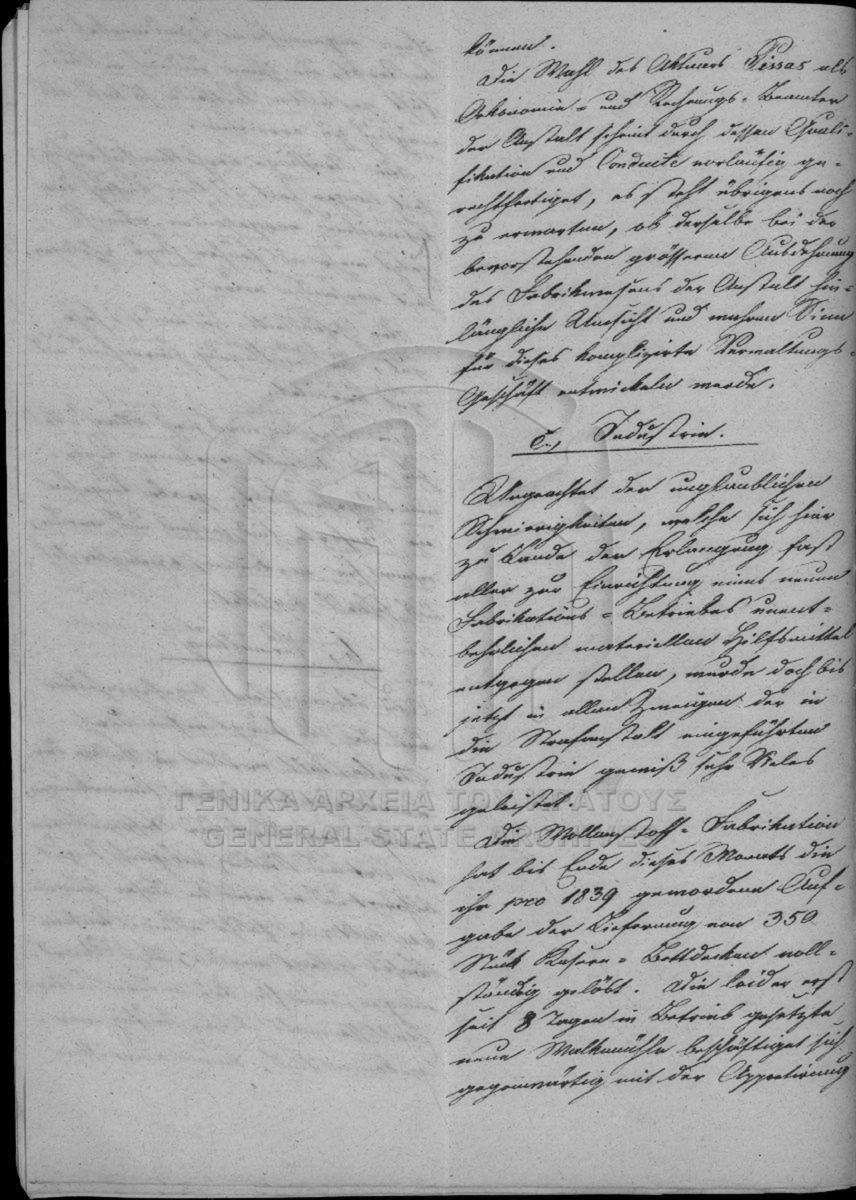 können.
Die Wahl des Aktuars Pissas als
Oekonomie- und Rechnungs-Beamter
der Anstalt scheint durch dessen Quali-
fikation und Conduite vorläufig ge-
rechtfertiget, es steht übrigens noch
zu erwarten, ob derselbe bei der
bevorstehenden grösseren Ausdehnung
des Fabrikwesens der Anstalt hin-
längliche Umsicht und wahren Sinn
für dieses komplizirte Verwaltungs-
Geschäft entwickeln werde.
C., Industrie.
Ungeachtet der unglaublichen
Schwierigkeiten, welche sich hier
zu Lande der Erlangung fast
aller zur Einrichtung eines neuen
Fabrikations-Betriebes unent-
behrlichen materiellen Hilfsmittel
entgegen stellen, wurde doch bis
jetzt in allen Zweigen der in
die Strafanstalt eingeführten
Industrie gewiß sehr Vieles
geleistet.
Die Wollenstoff-Fabrikation
hat bis Ende dieses Monats die
ihr pro 1839 gewordene Auf-
gabe der Lieferung von 350
Stück Kasern-Bettdecken voll-
ständig gelöst. Die leider erst
seit 8 Tagen in Betrieb gesetzte
neue Walkmühle beschäftiget sich
gegenwärtig mit der Appretirung
ΓΕΝΙΚΑ ΑΡΧΕΙΑ ΤΟΥ ΚΡΑΤΟΥΣ
GENERAL STATE ARCHIVES